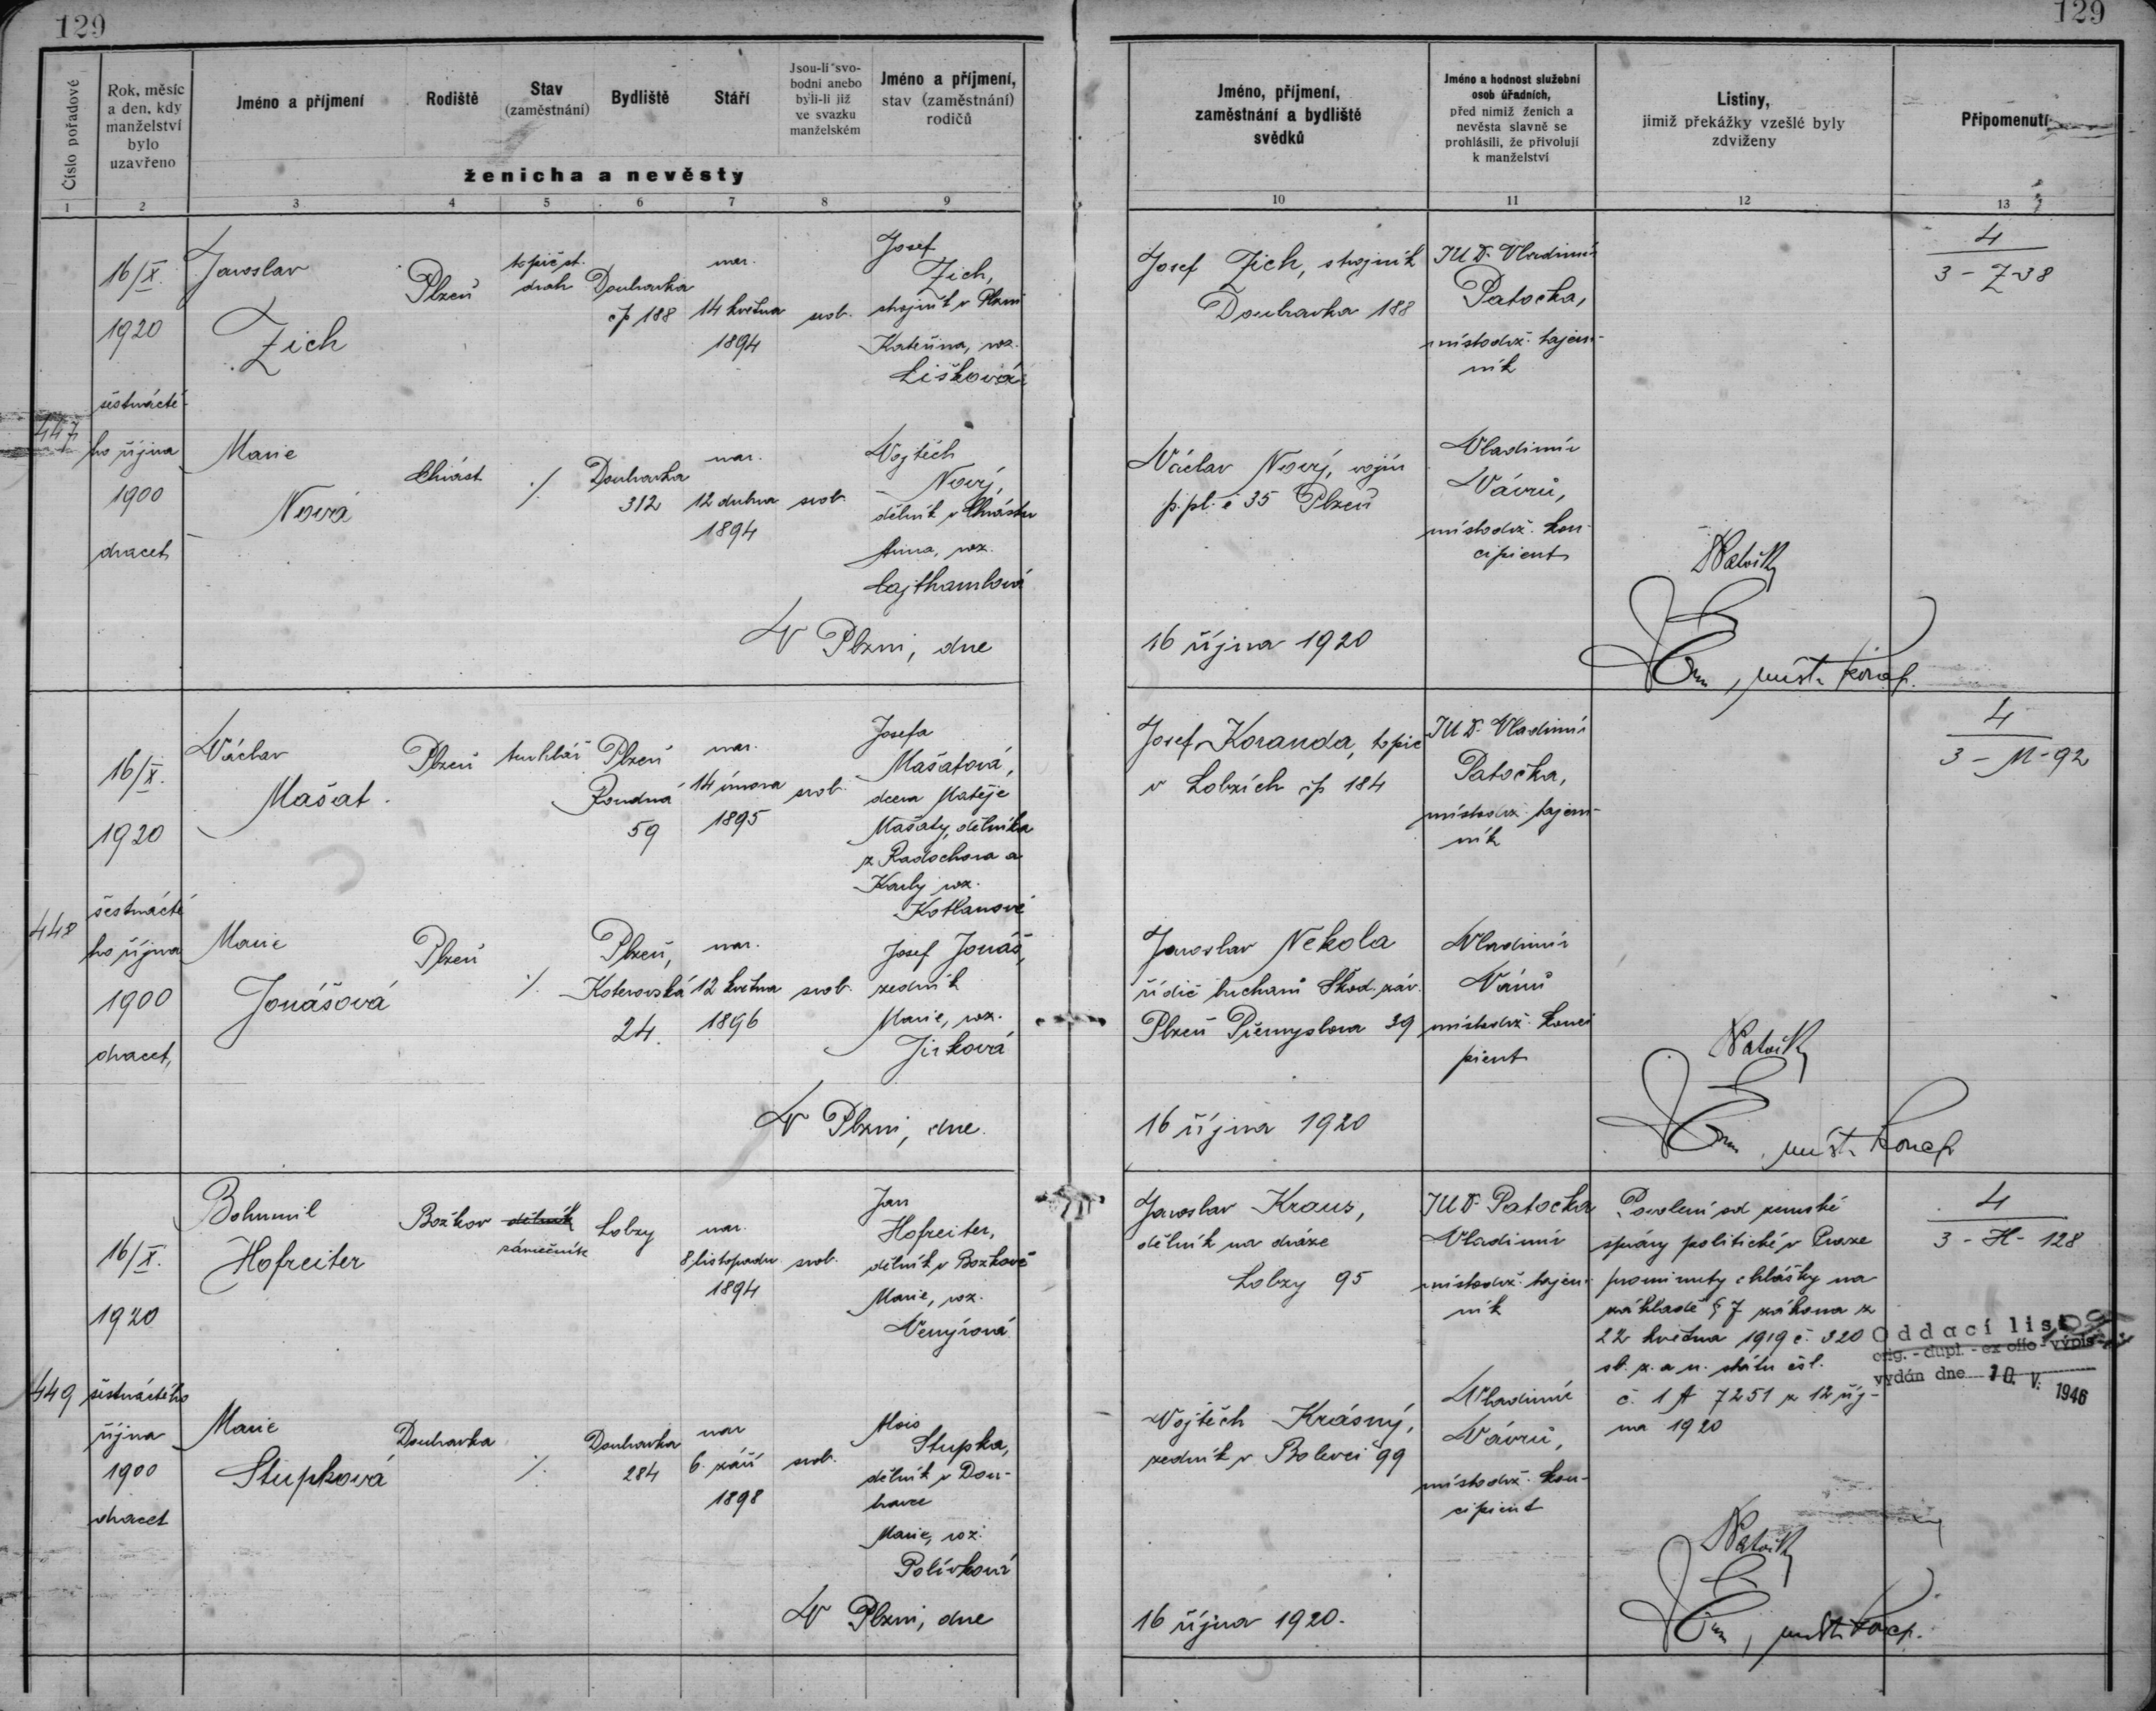 129
129
Číslo pořadové
Rok, měsíc
a den, kdy
manželství
bylo
uzavřeno
Jméno a příjmení
Rodiště
Stav
(zaměstnání)
Bydliště
Stáří
Jsou-li svo-
bodni anebo
byli-li již
ve svazku
manželském
Jméno a příjmení,
stav (zaměstnání)
rodičů
ženicha a nevěsty
Jméno, příjmení,
zaměstnání a bydliště
svědků
Jméno a hodnost služební
osob úřadních,
před nimiž ženich a
nevěsta slavně se
prohlásili, že přivolují
k manželství
Listiny,
jimiž překážky vzešlé byly
zdviženy
Připomenutí
1 2 3 4 5 6 7 8 9 10 11 12 13
447
16/X.
1920
šestnácté-
ho října
1900
dvacet
Jaroslav
Zich
Plzeň
topič st.
drah
Doubravka
čp 188
nar.
14 května
1894
svob.
Josef
Zich,
strojník v Plzni
Kateřina, roz.
Lišková
Josef Zich, strojník
Doubravka 188
JUDr Vladimír
Patočka,
místodrž. tajem-
ník
4
3 - Z-38
Marie
Nová
Chrást
./.
Doubravka
312
nar.
12 dubna
1894
svob.
Vojtěch
Nový,
dělník v Chrástu
Anna, roz.
Cajthamlová
Václav Nový, vojín
p. pl. č 35 Plzeň
Vladimír
Vávrů,
místodrž. kon-
cipient
V Plzni, dne
16 října 1920
místr. koncp.
448
16/X.
1920
šestnácté
ho října
1900
dvacet,
Václav
Mašat
Plzeň
truhlář
Plzeň
Roudná
59
nar.
14 února
1895
svob.
Josefa
Mašatová,
dcera Matěje
Mašaty, dělníka
z Radochova a
Karly roz.
Kotlanové
Josef Koranda, topič
v Lobzích čp 184
JUDr Vladimír
Patočka,
místodrž. tajem-
ník
4
3 - M-92
Marie
Jonášová
Plzeň
./.
Plzeň,
Koterovská
24.
nar.
12 května
1896
svob.
Josef Jonáš,
zedník
Marie, roz.
Jirková
Jaroslav Nekola
řidič buchanů Škod. záv.
Plzeň Přemyslova 39
Vladimír
Vávrů
místodrž. konci
pient
V Plzni, dne.
16 října 1920
místr. koncp.
449
16/X.
1920
šestnáctého
října
1900
dvacet
Bohumil
Hofreiter
Božkov
dělník
zámečník
Lobzy
nar.
8 listopadu
1894
svob.
Jan
Hofreiter,
dělník v Božkově
Marie, roz.
Jaroslav Kraus,
dělník na dráze
Lobzy 95
JUDr Patočka
Vladimír
místodrž. tajem-
ník
Povolení od zemské
správy politické v Praze
prominuty ohlášky na
základě § 7 zákona z
22 května 1919 č. 320
sb. z. a n. státu čsl.
č. 1 A 7251 z 12 říj-
na 1920
4
3 - H - 128
Oddací list
orig. - dupl. - ex offo - výpis
vydán dne 10. V. 1946
Marie
Stupková
Doubravka
./.
Doubravka
284
nar
6. září
1898
svob.
Alois
Stupka,
dělník v Dou-
bravce
Marie, roz.
Polívková
Vojtěch Krásný,
zedník v Bolevci 99
Vladimír
Vávrů,
místodrž. kon-
cipient
V Plzni, dne
16 října 1920.
místr. koncp.